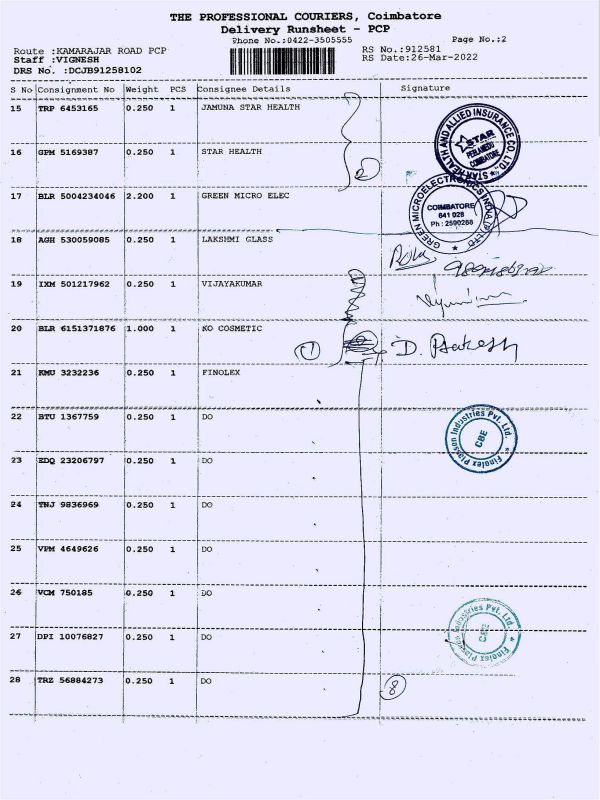 THE PROFESSIONAL COURIERS, Coimbatore
Delivery Runsheet - PCP
Phone No.:0422-3505555
Page No.:2
Route :KAMARAJAR ROAD PCP
RS No.:912581
Staff :VIGNESH
RS Date:26-Mar-2022
DRS No. :DCJB91258102
S No Consignment No Weight PCS Consignee Details Signature
15 TRP 6453165 0.250 1 JAMUNA STAR HEALTH
STAR HEALTH AND ALLIED INSURANCE CO. LTD.
STAR
COIMBATORE
16 GPM 5169387 0.250 1 STAR HEALTH
2
17 BLR 5004234046 2.200 1 GREEN MICRO ELEC
GREEN MICROELECTRONICS INDIA (P) LTD
COIMBATORE
641 028
Ph : 2590268
18 AGH 530059085 0.250 1 LAKSHMI GLASS
19 IXM 501217962 0.250 1 VIJAYAKUMAR
20 BLR 6151371876 1.000 1 KO COSMETIC
1
D. Prakesh
21 KMU 3232236 0.250 1 FINOLEX
22 BTU 1367759 0.250 1 DO
Finolex Plasson Industries Pvt. Ltd.
CBE
23 EDQ 23206797 0.250 1 DO
24 TNJ 9836969 0.250 1 DO
25 VPM 4649626 0.250 1 DO
26 VCM 750185 0.250 1 DO
27 DPI 10076827 0.250 1 DO
Finolex Plasson Industries Pvt. Ltd.
CBE
28 TRZ 56884273 0.250 1 DO
8